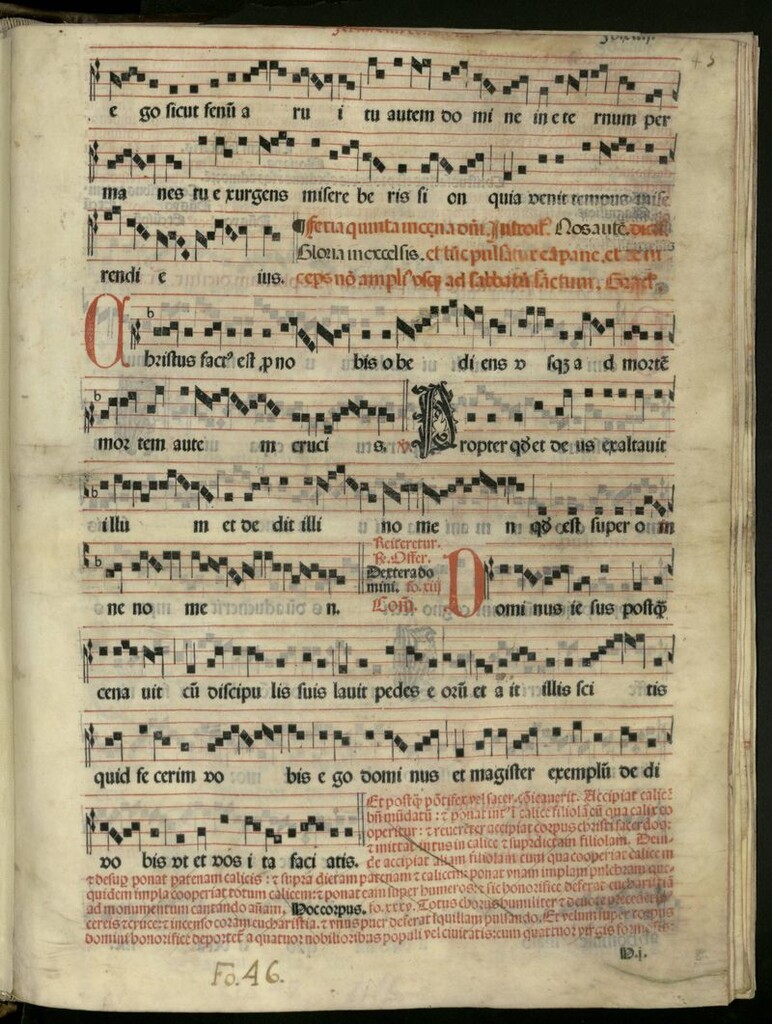 45
e go sicut fenū a ru i tu autem do mi ne in e te rnum per
ma nes tu e xurgens misere be ris si on quia venit tempus mise
rendi e ius.
Feria quinta in cena dñi. Introit⁹. Nos autē.
Gloria in excelsis. et tūc pulsatur cāpane. et dein
ceps nō ampl⁹ vsq̄ ad sabbatū sāctum. Grad̄.
Christus fact⁹ est ꝓ no bis o be di ens v sqꝫ a d mortē
mor tem aute m cruci s. Propter qḋ et de us exaltauit
illu m et de dit illi no me n qḋ est super o m
ne no me n.
Reiteretur.
Offer.
Dextera do
mini. fo. xiij
Cōm̄.
Domi nus ie sus postq̄
cena uit cū discipu lis suis lauit pedes e orū et a it illis sci tis
quid fe cerim vo bis e go domi nus et magister exemplū de di
vo bis vt et vos i ta faci atis.
Et postq̄ pōtifex vel sacer. cōicauerit. Accipiat calicē
bn̄ mūdatū: ⁊ ponat int⁹ calice filiolā cū qua calix co
operitur: ⁊ reuerēter accipiat corpus christi sacerdos:
⁊ mittat intus in calice ⁊ supradictam filiolam. Dein-
de accipiat aliam filiolam cum qua cooperiat calicem
⁊ desup̱ ponat patenam calicis: ⁊ supra dictam patenam ⁊ calicem ponat vnam implam pulchram que
quidem impla cooperiat totum calicem: ⁊ ponat eam super humeros: ⁊ sic honorifice deferat eucharistiā
ad monumentum cantando añam. Hoc corpus. fo. xxxv. Totus chorus humiliter ⁊ deuote precedat
cereis ⁊ cruce: ⁊ incenso coram eucharistia. ⁊ vnus puer deferat squillam pulsando. Et velum super corpus
domini honorifice deportēt a quatuor nobilioribus populi vel ciuitatis: cum quatuor virgis
D.j.
Fo. 46.